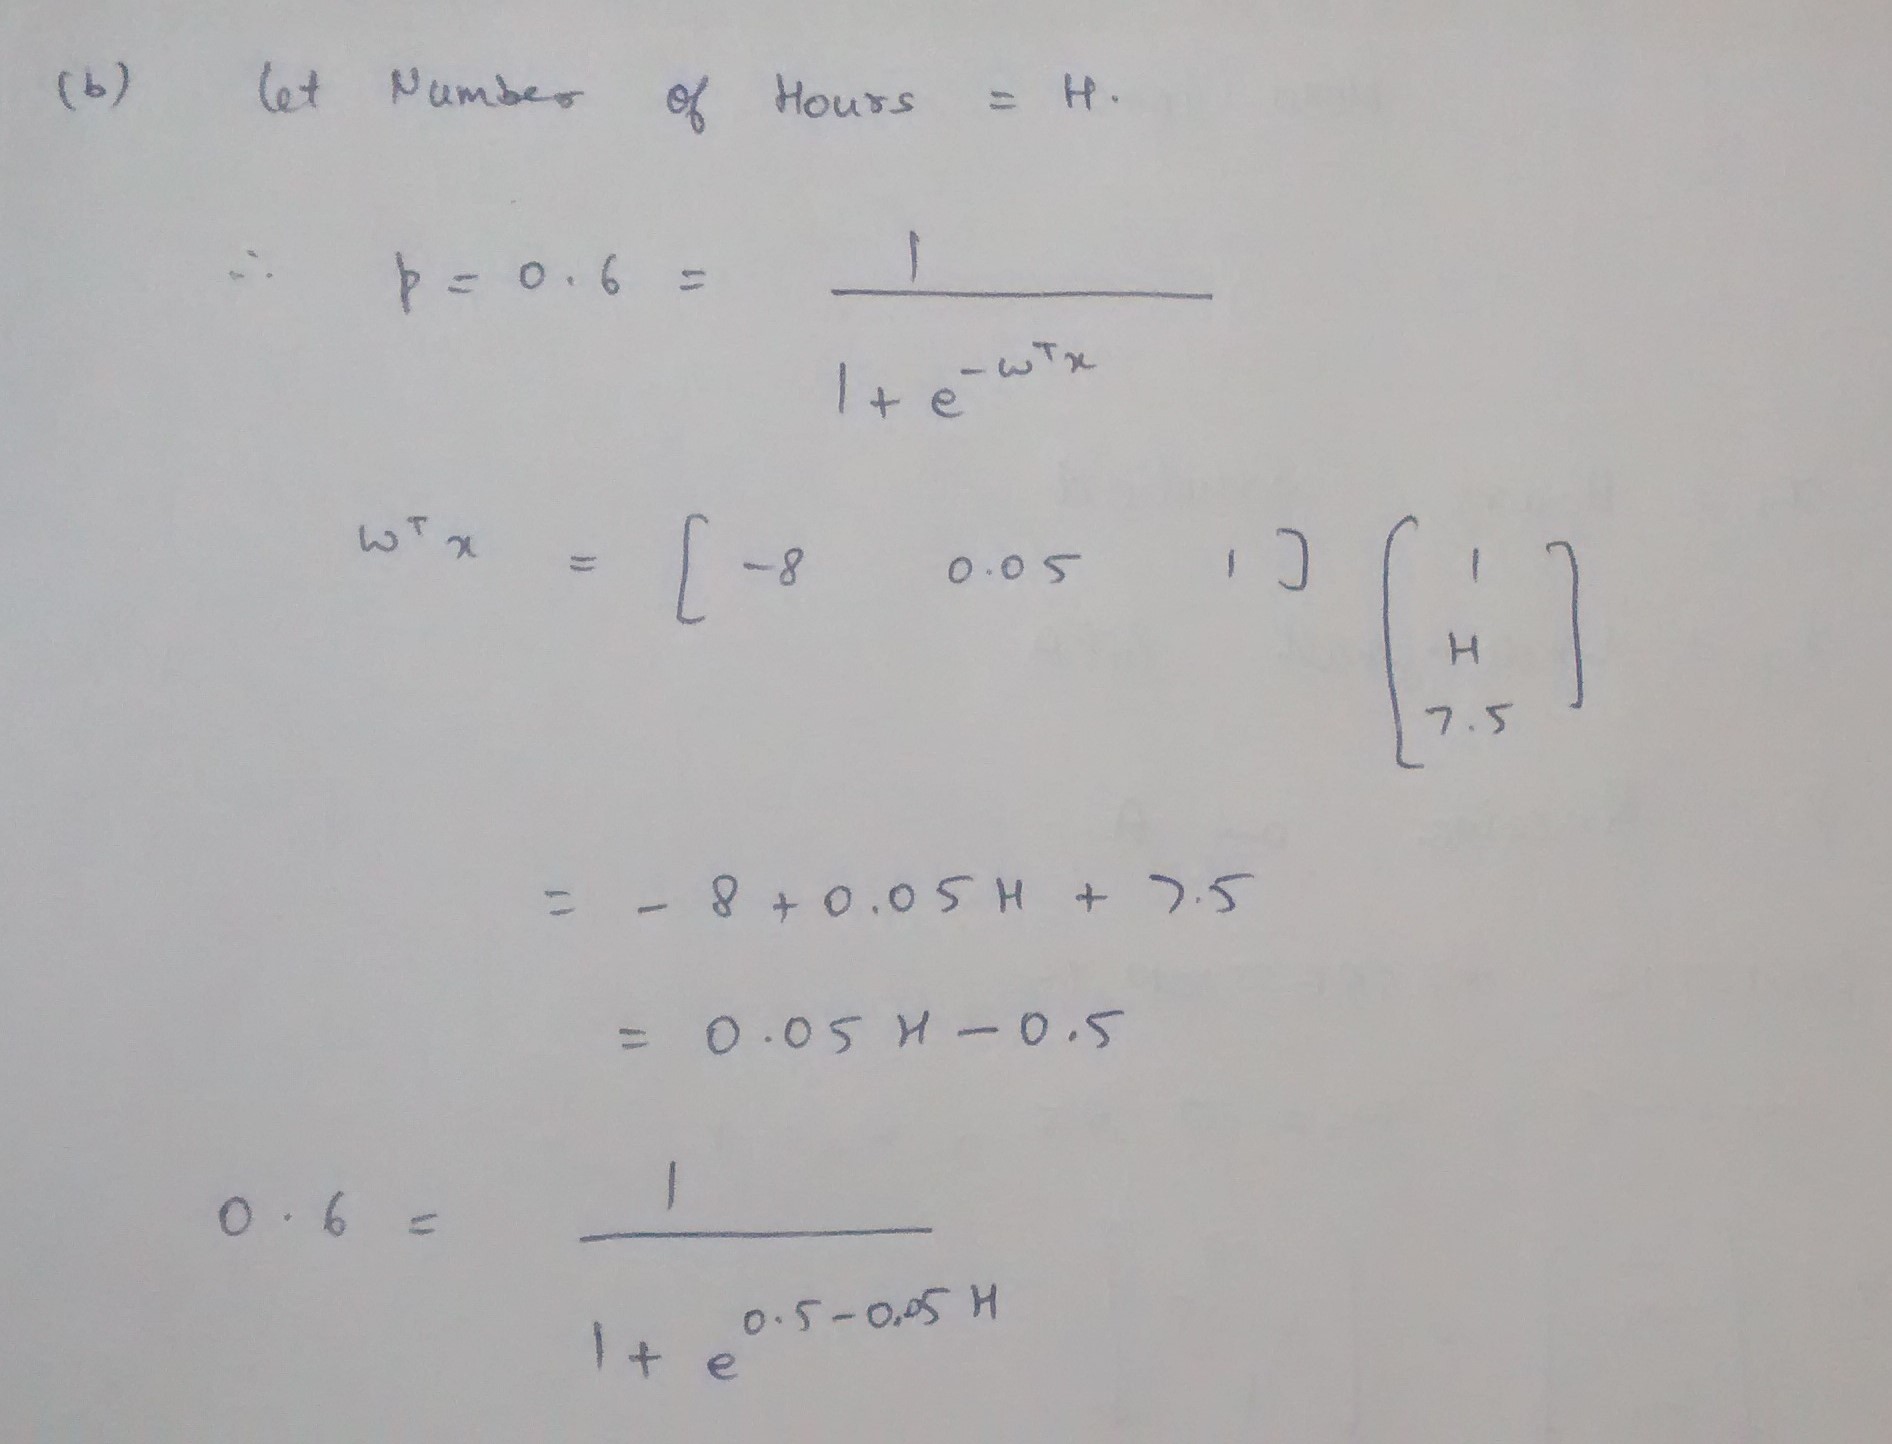 (b) Let Number of Hours = H.
∴ p = 0.6 = 1 / (1 + e^(-w^T x))
w^T x = [ -8 0.05 1 ] [ 1 H 7.5 ]
= - 8 + 0.05 H + 7.5
= 0.05 H - 0.5
0.6 = 1 / (1 + e^(0.5 - 0.05 H))